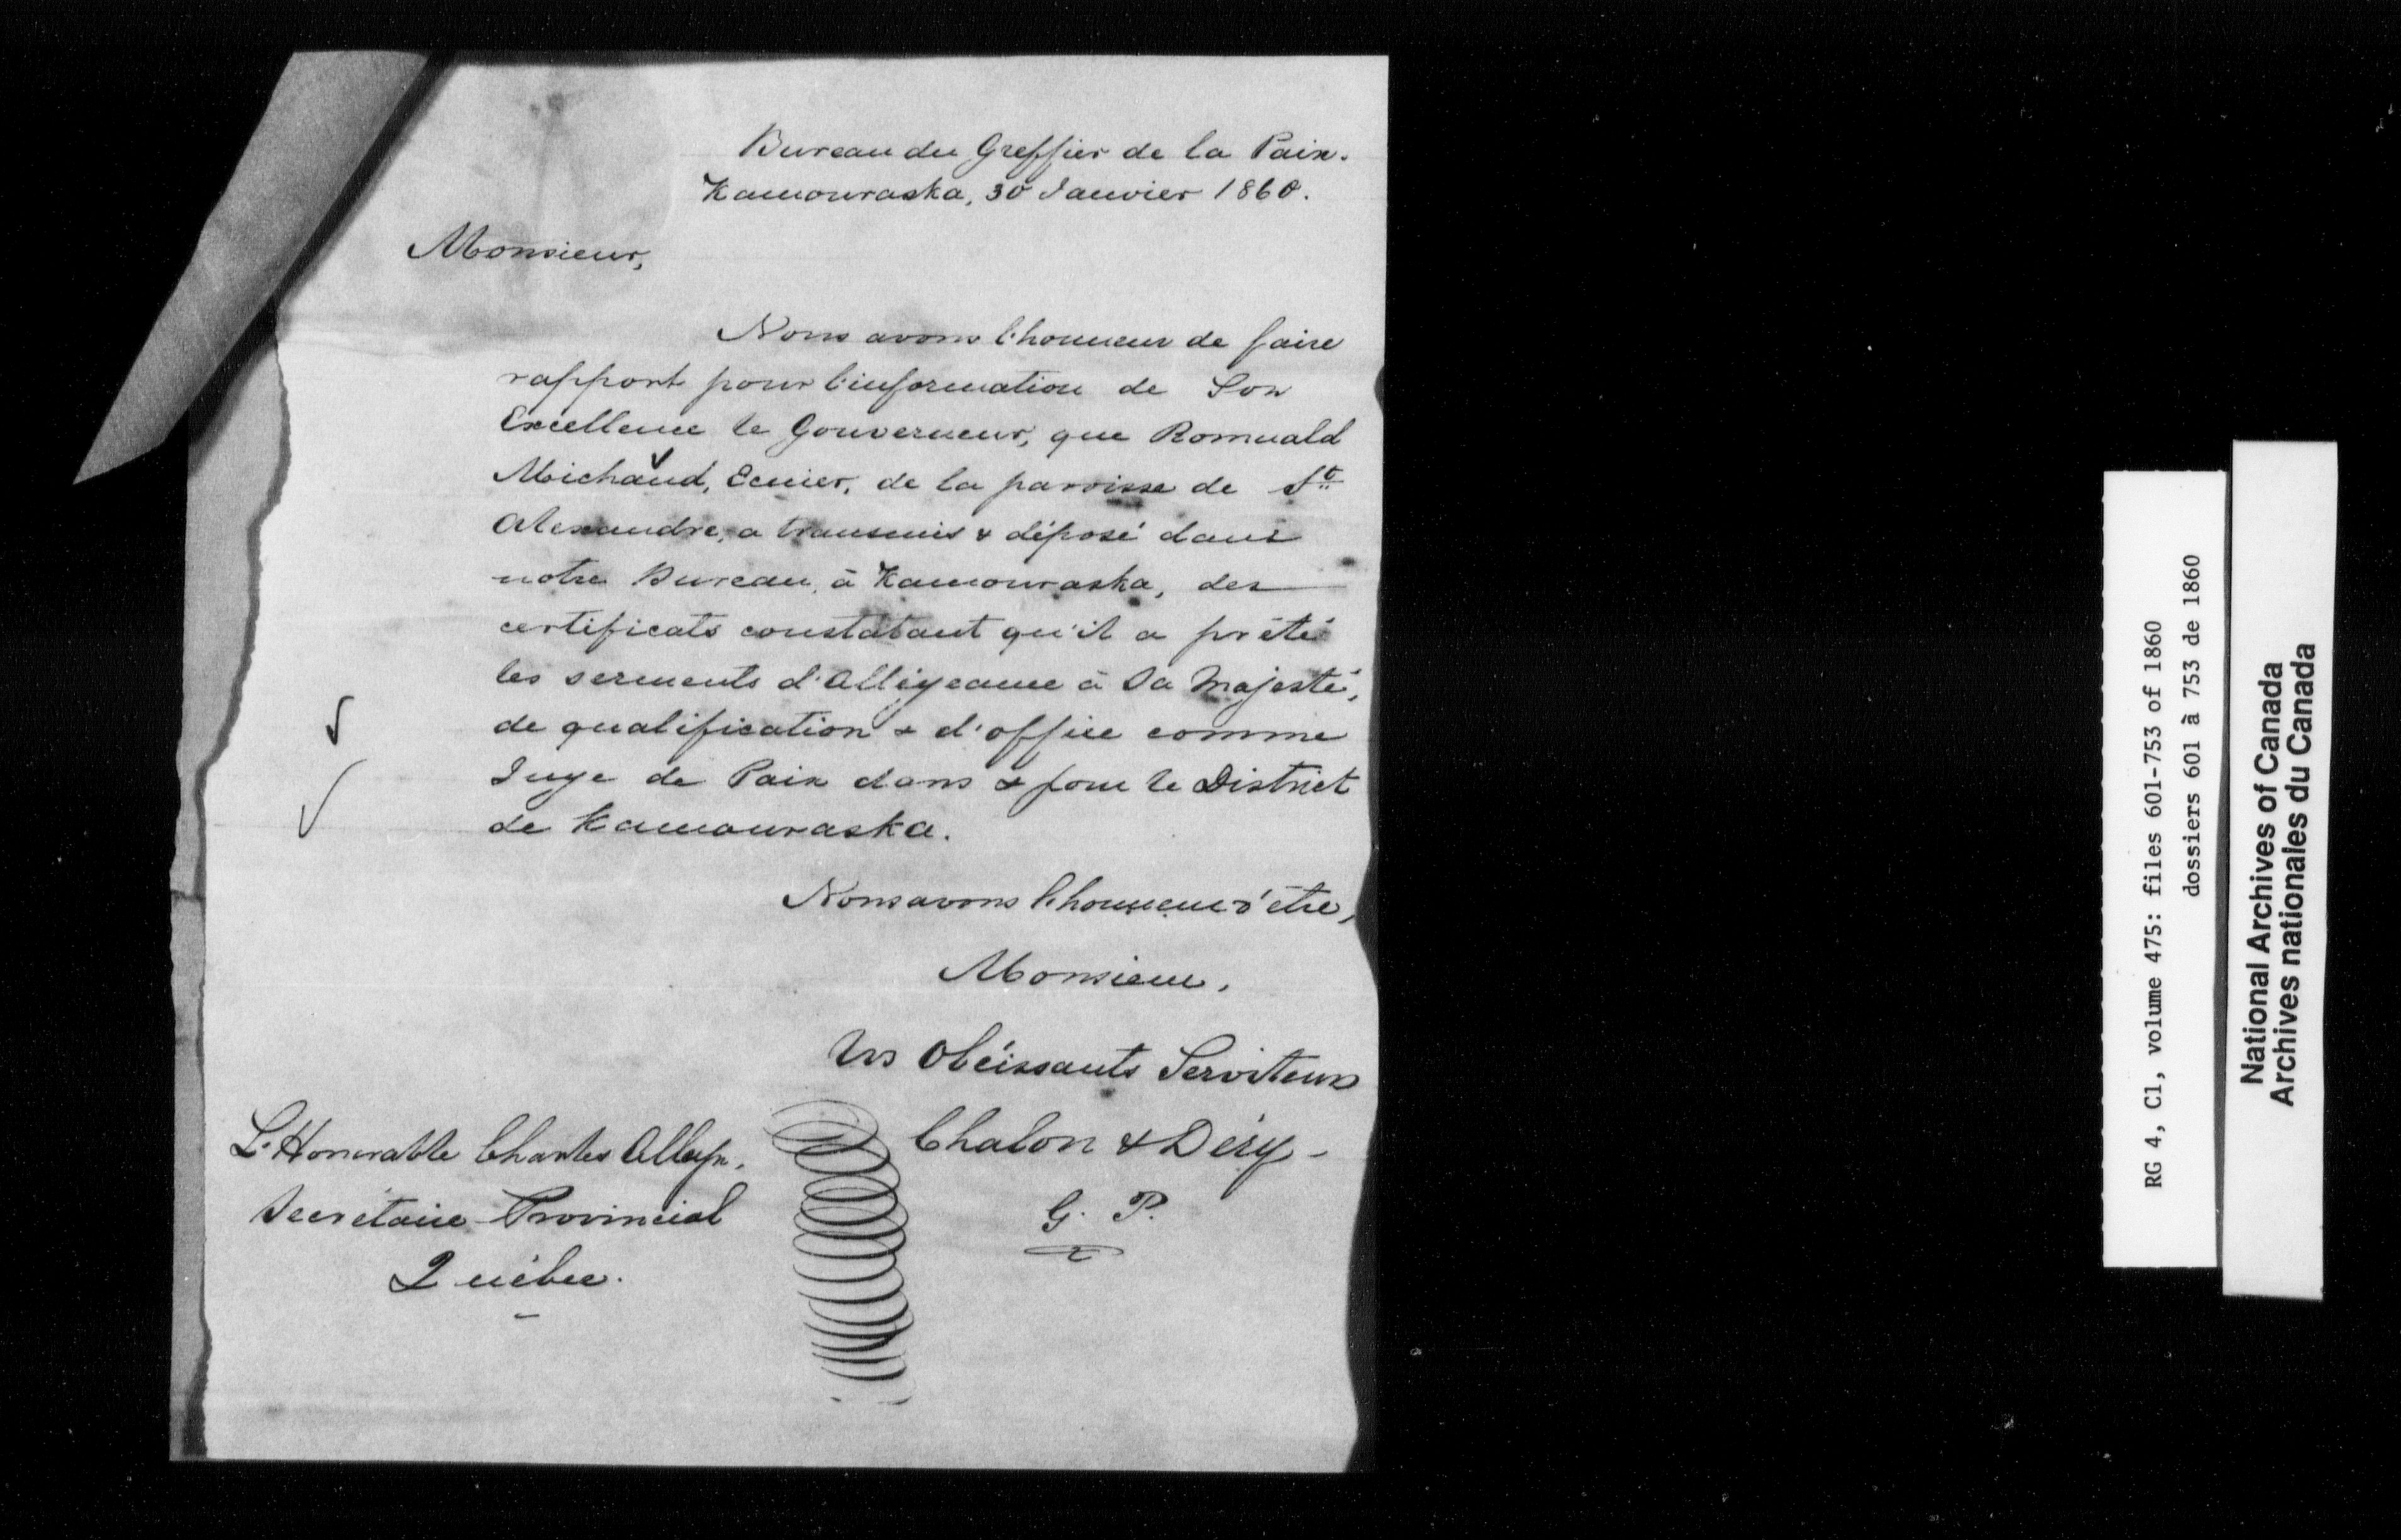 Bureau du Greffier de la Paix.
Kamouraska, 30 Janvier 1860.
Monsieur,
Nous avons l'honneur de faire
rapport pour l'information de Son
Excellence le Gouverneur, que Romuald
Michaud, Ecuier, de la paroisse de St
Alexandre, a transmis & déposé dans
notre Bureau, à Kamouraska, des
certificats constatant qu'il a prêté
les serments d'Allégeance à Sa Majesté,
de qualification & d'office comme
Juge de Paix dans & pour le District
de Kamouraska.
Nous avons l'honneur d'être,
Monsieur,
Vos Obéissants Serviteurs
Chalon & Déry -
G. P.
L'Honorable Charles Alleyn,
Secrétaire Provincial
Québec.
RG 4, C1, volume 475: files 601-753 of 1860
dossiers 601 à 753 de 1860
National Archives of Canada
Archives nationales du Canada